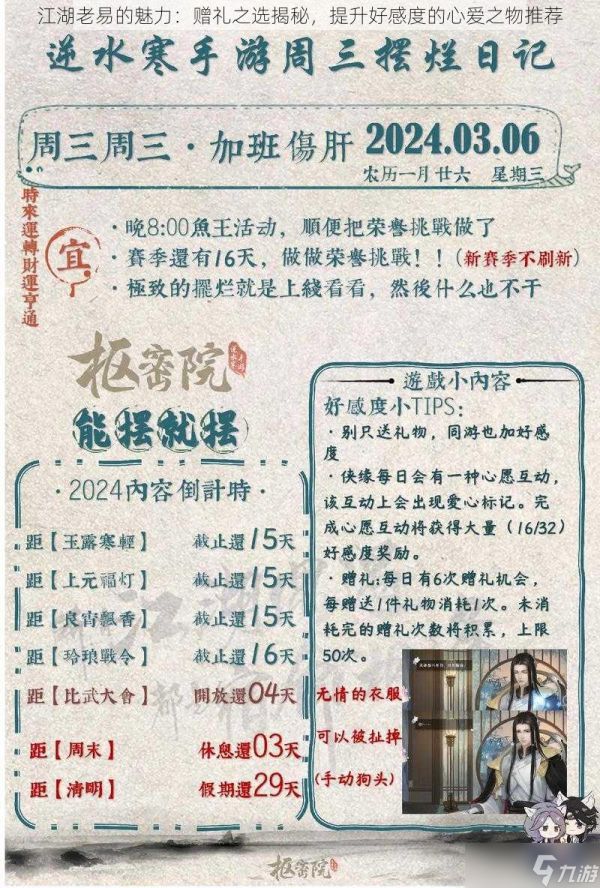 江湖老易的魅力：赠礼之选揭秘，提升好感度的心爱之物推荐
逆水寒手游周三摆烂日记
周三周三·加班傷肝 2024.03.06
农历一月廿六 星期三
時來運轉財運亨通
宜
·晚8:00魚王活动，順便把荣譽挑戰做了
·賽季還有16天，做做荣譽挑戰！！(新賽季不刷新)
·極致的擺烂就是上綫看看，然後什么也不干
枢密院
逆水寒
手游
能摆就摆
·2024內容倒計時·
距【玉露寒輕】 截止還15天
距【上元福灯】 截止還15天
距【良宵飄香】 截止還15天
距【玲琅戰令】 截止還16天
距【比武大會】 開放還04天
距【周末】 休息還03天
距【清明】 假期還29天
遊戲小內容
好感度小TIPS：
·别只送礼物，同游也加好感
度
·侠缘每日会有一种心愿互动，
该互动上会出现爱心标记。完
成心愿互动将获得大量（16/32）
好感度奖励。
·赠礼:每日有6次赠礼机会，
每赠送1件礼物消耗1次。未消
耗完的赠礼次数将积累，上限
50次。
无情的衣服
可以被扯掉
(手动狗头)
枢密院
九游